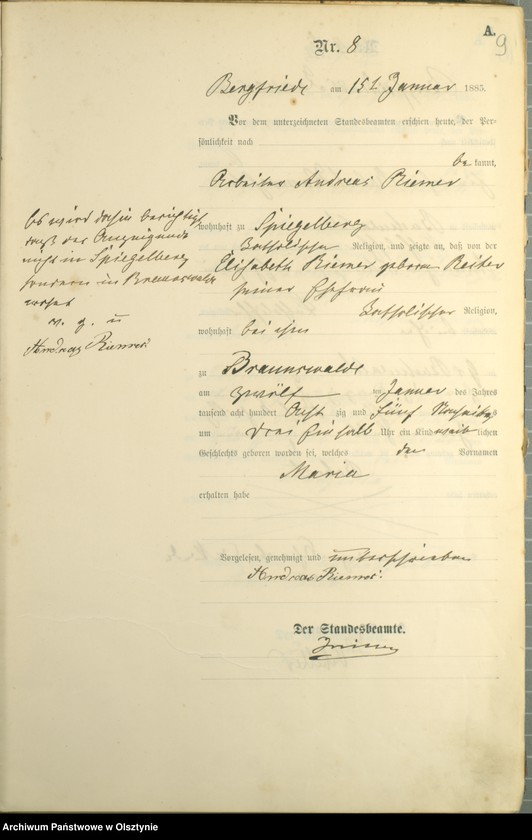 A.
9
Nr. 8
Bergfriede am 15t Januar 1885.
Vor dem unterzeichneten Standesbeamten erschien heute, der Per-
sönlichkeit nach
bekannt,
Arbeiter Andreas Riemer
wohnhaft zu Spiegelberg
katholischer Religion, und zeigte an, daß von der
Elisabeth Riemer geboren Reiter
seiner Ehefrau
katholischer Religion,
wohnhaft bei ihm
zu Braunswalde
am zwölf ten Januar des Jahres
tausend acht hundert Acht zig und fünf Nachmittags
um drei einhalb Uhr ein Kind weib lichen
Geschlechts geboren worden sei, welches den Vornamen
Maria
erhalten habe
Vorgelesen, genehmigt und unterschrieben
Andreas Riemer
Der Standesbeamte.
Es wird dahin berichtigt
daß der Anzeigende
nicht in Spiegelberg
sondern in Braunswalde
wohnt
v. g. u
Andreas Riemer
Archiwum Państwowe w Olsztynie